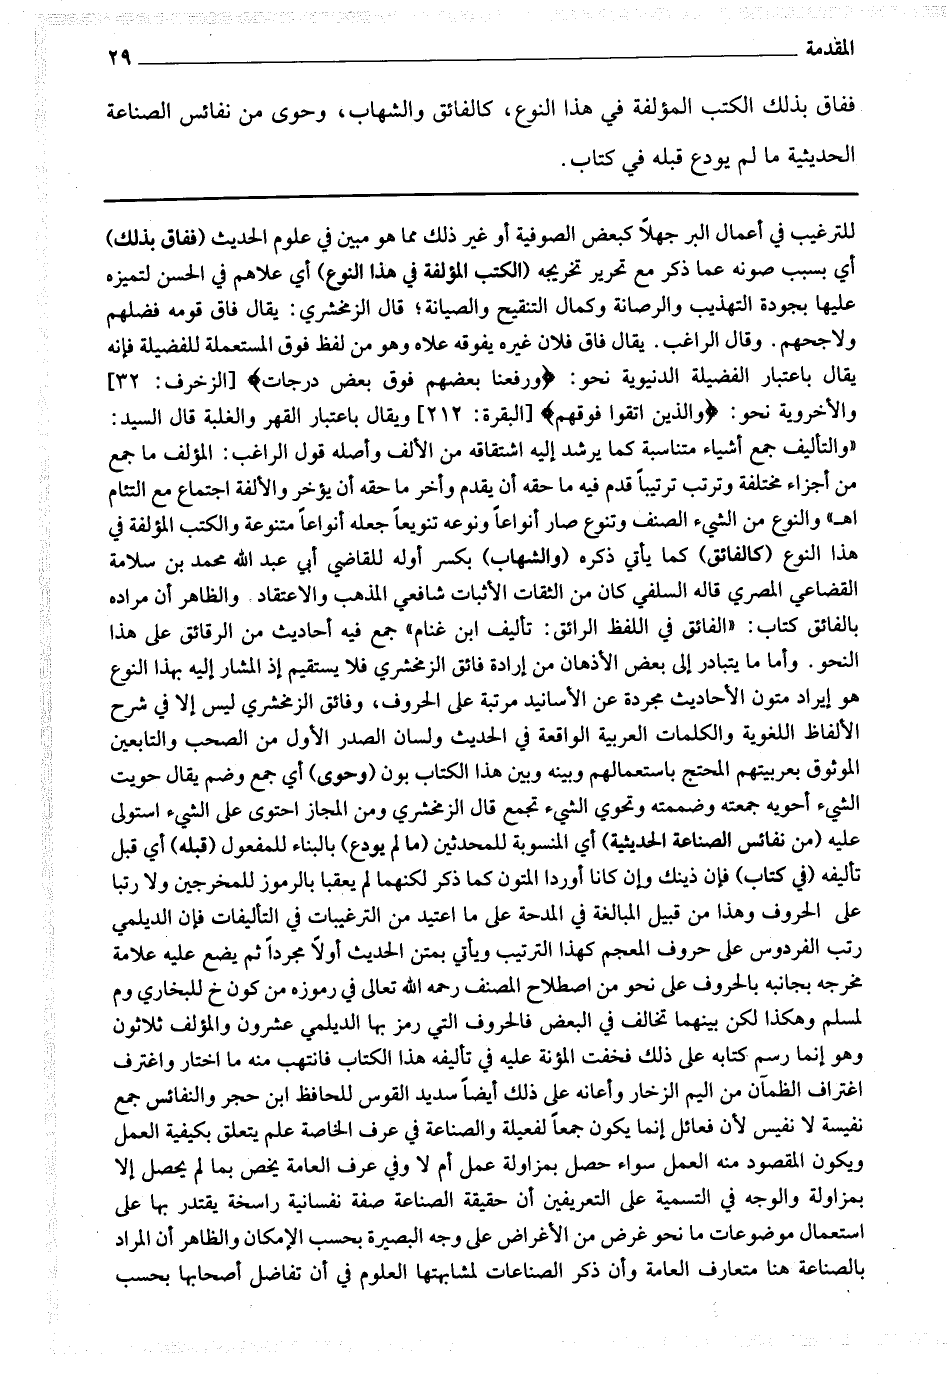 المقدمة ٢٩
ففاق بذلك الكتب المؤلفة في هذا النوع، كالفائق والشهاب، وحوى من نفائس الصناعة
الحديثية ما لم يودع قبله في كتاب.
للترغيب في أعمال البر جهلاً كبعض الصوفية أو غير ذلك مما هو مبين في علوم الحديث (ففاق بذلك)
أي بسبب صونه عما ذكر مع تحرير تخريجه (الكتب المؤلفة في هذا النوع) أي علاهم في الحسن لتميزه
عليها بجودة التهذيب والرصانة وكمال التنقيح والصيانة؛ قال الزمخشري: يقال فاق قومه فضلهم
ولاجحهم. وقال الراغب. يقال فاق فلان غيره يفوقه علاه وهو من لفظ فوق المستعملة للفضيلة فإنه
يقال باعتبار الفضيلة الدنيوية نحو: ﴿ورفعنا بعضهم فوق بعض درجات﴾ [الزخرف: ٣٢]
والأخروية نحو: ﴿والذين اتقوا فوقهم﴾ [البقرة: ٢١٢] ويقال باعتبار القهر والغلبة قال السيد:
«والتأليف جمع أشياء متناسبة كما يرشد إليه اشتقاقه من الألف وأصله قول الراغب: المؤلف ما جمع
من أجزاء مختلفة وترتب ترتيباً قدم فيه ما حقه أن يقدم وأخر ما حقه أن يؤخر والألفة اجتماع مع التئام
اهـ» والنوع من الشيء الصنف وتنوع صار أنواعاً ونوعه تنويعاً جعله أنواعاً متنوعة والكتب المؤلفة في
هذا النوع (كالفائق) كما يأتي ذكره (والشهاب) بكسر أوله للقاضي أبي عبد الله محمد بن سلامة
القضاعي المصري قاله السلفي كان من الثقات الأثبات شافعي المذهب والاعتقاد. والظاهر أن مراده
بالفائق كتاب: «الفائق في اللفظ الرائق: تأليف ابن غنام» جمع فيه أحاديث من الرقائق على هذا
النحو. وأما ما يتبادر إلى بعض الأذهان من إرادة فائق الزمخشري فلا يستقيم إذ المشار إليه بهذا النوع
هو إيراد متون الأحاديث مجردة عن الأسانيد مرتبة على الحروف، وفائق الزمخشري ليس إلا في شرح
الألفاظ اللغوية والكلمات العربية الواقعة في الحديث ولسان الصدر الأول من الصحب والتابعين
الموثوق بعربيتهم المحتج باستعمالهم وبينه وبين هذا الكتاب بون (وحوى) أي جمع وضم يقال حويت
الشيء أحويه جمعته وضممته وتحوي الشيء تجمع قال الزمخشري ومن المجاز احتوى على الشيء استولى
عليه (من نفائس الصناعة الحديثية) أي المنسوبة للمحدثين (ما لم يودع) بالبناء للمفعول (قبله) أي قبل
تأليفه (في كتاب) فإن ذينك وإن كانا أوردا المتون كما ذكر لكنهما لم يعقبا بالرموز للمخرجين ولا رتبا
على الحروف وهذا من قبيل المبالغة في المدحة على ما اعتيد من الترغيبات في التأليفات فإن الديلمي
رتب الفردوس على حروف المعجم كهذا الترتيب ويأتي بمتن الحديث أولاً مجرداً ثم يضع عليه علامة
مخرجه بجانبه بالحروف على نحو من اصطلاح المصنف رحمه الله تعالى في رموزه من كون خ للبخاري وم
لمسلم وهكذا لكن بينهما تخالف في البعض فالحروف التي رمز بها الديلمي عشرون والمؤلف ثلاثون
وهو إنما رسم كتابه على ذلك فخفت المؤنة عليه في تأليفه هذا الكتاب فانتهب منه ما اختار واغترف
اغتراف الظمآن من اليم الزخار وأعانه على ذلك أيضاً سديد القوس للحافظ ابن حجر والنفائس جمع
نفيسة لا نفيس لأن فعائل إنما يكون جمعاً لفعيلة والصناعة في عرف الخاصة علم يتعلق بكيفية العمل
ويكون المقصود منه العمل سواء حصل بمزاولة عمل أم لا وفي عرف العامة يخص بما لم يحصل إلا
بمزاولة والوجه في التسمية على التعريفين أن حقيقة الصناعة صفة نفسانية راسخة يقتدر بها على
استعمال موضوعات ما نحو غرض من الأغراض على وجه البصيرة بحسب الإمكان والظاهر أن المراد
بالصناعة هنا متعارف العامة وأن ذكر الصناعات لمشابهتها العلوم في أن تفاضل أصحابها بحسب